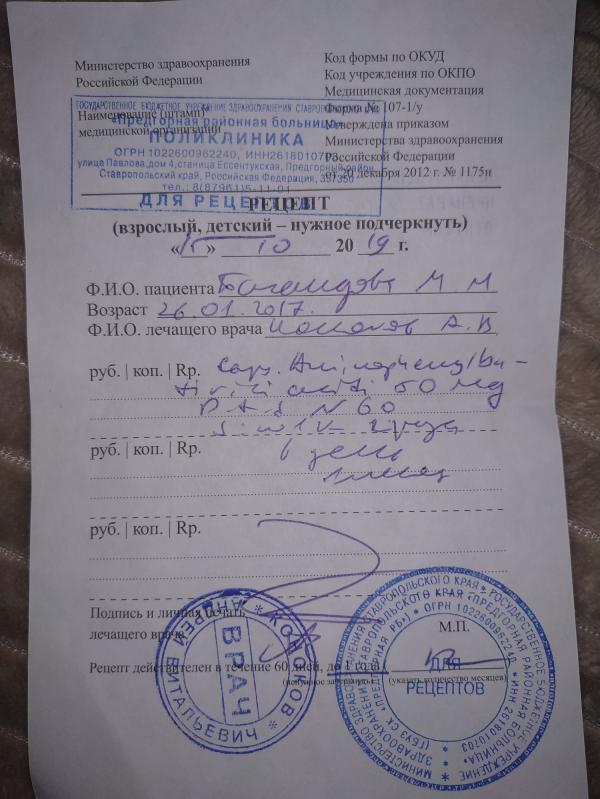 Министерство здравоохранения
Российской Федерации
Код формы по ОКУД
Код учреждения по ОКПО
Медицинская документация
Форма № 107-1/у
Утверждена приказом
Министерства здравоохранения
Российской Федерации
от 20 декабря 2012 г. № 1175н
Наименование (штамп)
медицинской организации
ГОСУДАРСТВЕННОЕ БЮДЖЕТНОЕ УЧРЕЖДЕНИЕ ЗДРАВООХРАНЕНИЯ
«Предгорная районная больница»
ПОЛИКЛИНИКА
ОГРН 1022600962240, ИНН
улица Павлова, дом 4, станица Ессентукская, Предгорный район
Ставропольский край, Российская Федерация, 357350
тел.: 8(87961)5-11-01
ДЛЯ РЕЦЕПТОВ
РЕЦЕПТ
(взрослый, детский – нужное подчеркнуть)
«15» 10 2019 г.
Ф.И.О. пациента М М
Возраст 26.01.2017.
Ф.И.О. лечащего врача А.В
руб. | коп. | Rp. Caps. Aminophenylbu-
tirici acidi 50 мg
D t d N 60
S.
руб. | коп. | Rp. в день
1 месяц
руб. | коп. | Rp.
Подпись и личная печать
лечащего врача
М.П.
Рецепт действителен в течение 60 дней, до 1 года (
(ненужное зачеркнуть) (указать количество месяцев)
* КОНОКОВ * АНДРЕЙ ВИТАЛЬЕВИЧ
ВРАЧ
МИНИСТЕРСТВО ЗДРАВООХРАНЕНИЯ СТАВРОПОЛЬСКОГО КРАЯ * ГОСУДАРСТВЕННОЕ БЮДЖЕТНОЕ УЧРЕЖДЕНИЕ
ЗДРАВООХРАНЕНИЯ СТАВРОПОЛЬСКОГО КРАЯ «ПРЕДГОРНАЯ РАЙОННАЯ БОЛЬНИЦА»
(ГБУЗ СК «ПРЕДГОРНАЯ РБ») * ОГРН 1022600962240 * ИНН 2618010703
ДЛЯ
РЕЦЕПТОВ